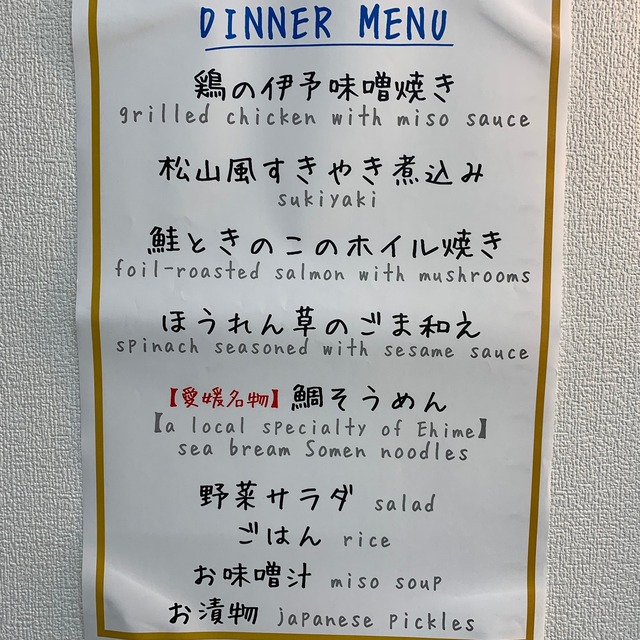 DINNER MENU
鶏の伊予味噌焼き
grilled chicken with miso sauce
松山風すきやき煮込み
sukiyaki
鮭ときのこのホイル焼き
foil-roasted salmon with mushrooms
ほうれん草のごま和え
spinach seasoned with sesame sauce
【愛媛名物】鯛そうめん
【a local specialty of Ehime】
sea bream Somen noodles
野菜サラダ salad
ごはん rice
お味噌汁 miso soup
お漬物 japanese pickles